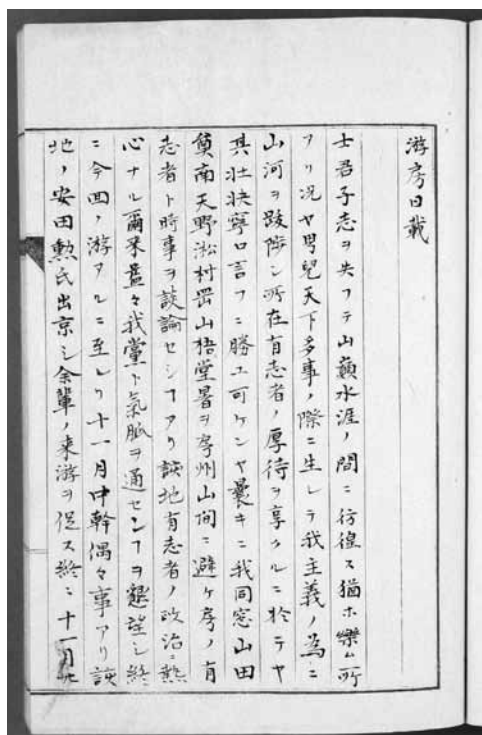 游房日載
士君子志ヲ失フテ山巔水涯ノ間ニ彷徨ス猶ホ樂ム所
アリ况ヤ男兒天下多事ノ際ニ生レテ我主義ノ為ニ
山河ヲ跋渉シ所在有志者ノ厚待ヲ享クルニ於テヤ
其壮快寧ロ言フニ勝ユ可ケンヤ曩キニ我同窓山田
奠南天野淞村岡山梧堂暑ヲ房州山間ニ避ケ房ノ有
志者ト時事ヲ談論セシヿアリ該地有志者ノ政治ニ熱
心ナル爾来益々我黨ト氣脈ヲ通センヿヲ懇望シ終
ニ今回ノ游アルニ至レリ十一月中幹偶々事アリ該
地ノ安田勲氏出京シ余輩ノ来游ヲ促ス終ニ十一月